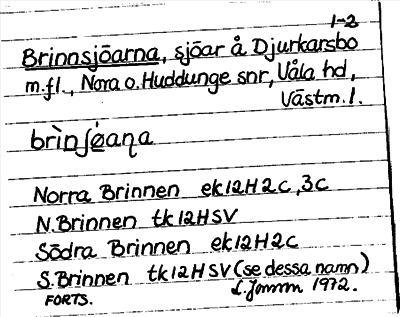 1-2
Brinnsjöarna, sjöar å Djurkarsbo
m.fl., Nora o. Huddunge snr, Våla hd,
Västm. l.
brìnʃǿaɳa
Norra Brinnen ek12H2c,3c
N. Brinnen tk12HSV
Södra Brinnen ek12H2c
S. Brinnen tk12HSV (se dessa namn)
FORTS. 1972.